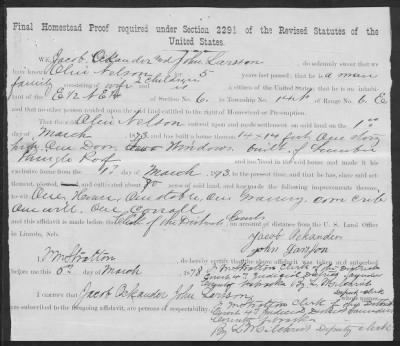 Final Homestead Proof required under Section 2291 of the Revised Statutes of the
United States.
We, Jacob Oskander and John Larsson, do solemnly swear that we
have known Olin Nelson for 5 years last passed; that he is a man
family consisting of wife and 2 children is a citizen of the United States; that he is an inhabi-
tant of the E ½ N E ¼ of Section No. 6 in Township No. 14 N of Range No. 6 E
and that no other person resided upon the said land entitled to the right of Homestead or Pre-emption.
That the said Olin Nelson entered upon and made settlement on said land on the 1st
day of March 1873 and has built a house thereon 14 x 14 feet One story
high One Door two Windows built of lumber
Shingle Roof and has lived in the said house and made it his
exclusive home from the 1st day of March 1873, to the present time, and that he has, since said set-
tlement, plowed, and cultivated about 80 acres of said land, and has made the following improvements thereon,
to-wit: One House, One stable, One Granary, corn crib
One well, One Corrall
and this affidavit is made before the Clerk of the District Court, on account of distance from the U. S. Land Office
in Lincoln, Neb.
Jacob Oskander
John Larsson
I, E M Stratton do hereby certify that the above affidavit was taken and subscribed
before me this 5th day of March 1878
E M Stratton Clerk of the District
Court 4th Judicial District Saunders
County Nebraska By L W Gilchrist
Deputy clerk
I certify that Jacob Oskander John Larsson whose names
are subscribed to the foregoing affidavit, are persons of respectability.
E M Stratton Clerk of the District
Court 4th Judicial District Saunders
County Nebraska
By L W Gilchrist Deputy clerk